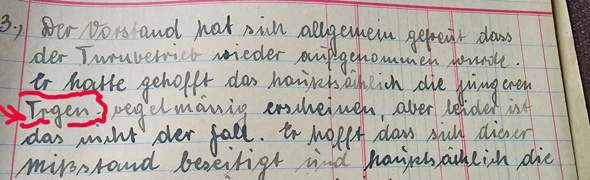 3.) Der Vorstand hat sich allgemein gefreut dass
der Turnbetrieb wieder aufgenommen wurde.
Er hatte gehofft das hauptsächlich die jüngeren
Trgen regelmässig erscheinen, aber leider ist
das nicht der fall. Er hofft dass sich dieser
Mißstand beseitigt und hauptsächlich die